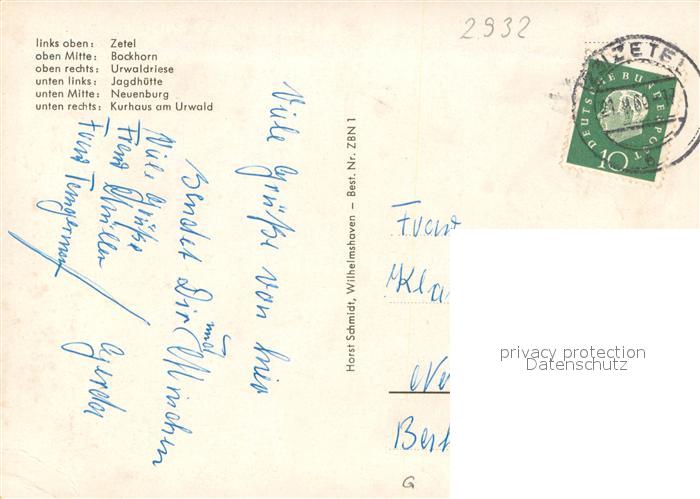 2932
links oben: Zetel
oben Mitte: Bockhorn
oben rechts: Urwaldriese
unten links: Jagdhütte
unten Mitte: Neuenburg
unten rechts: Kurhaus am Urwald
Viele Grüße von hier
sendet Dir
und
Viele Grüße
Frau Müller
Frau
Gerda
Horst Schmidt, Wilhelmshaven – Best. Nr. ZBN 1
ZETEL
DEUTSCHE BUNDESPOST
10
Frau
Kla
Ber
privacy protection
Datenschutz
G